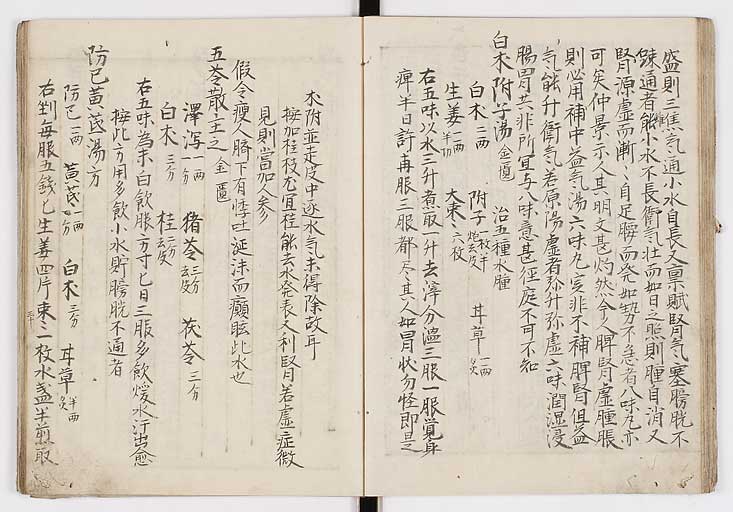 盛則三焦氣通小水自長又稟賦腎氣塞膀胱不
踈通者能小水不長衛氣壮而如日之照則腫自消又
腎源虚而漸〻自足腰而発如勢不急者八味丸亦
可矣仲景示人其明文甚灼然今人脾腎虚腫脹
則必用補中益氣湯六味丸是非不補脾腎但益
氣能升衛氣若原陽虚者弥升弥虚六味潤湿浸
腸胃共非所宜与八味意甚徑庭不可不知
白朮附子湯 金匱 治五種水腫
白朮 二两 附子 一枚半炮去皮 甘草 一两炙
生姜 一两半切 大棗 六枚
右五味以水三升煮取一升去滓分温三服一服覚身
痺半日許再服三服都尽其人如冒状勿怪即是
朮附並走皮中逐水氣未得除故耳
按加桂枝尤宜桂能去水発表又利腎月若虚症微
見則當加人参
假令瘦人臍下有悸吐涎沫而癲眩此水也
五苓散主之 金匱
澤泻 一两一分 猪苓 三分去皮 茯苓 三分
白朮 三分 桂 二分去皮
右五味為末白飲服方寸匕日三服多飲煖水汗出愈
按此方用多飲小水貯膀胱不通者
防已黄芪湯方
防已 一两 黄芪 一两一分 白朮 三分 甘草 半两炙
右剉每服五錢匕生姜四片棗一枚水盞半煎取